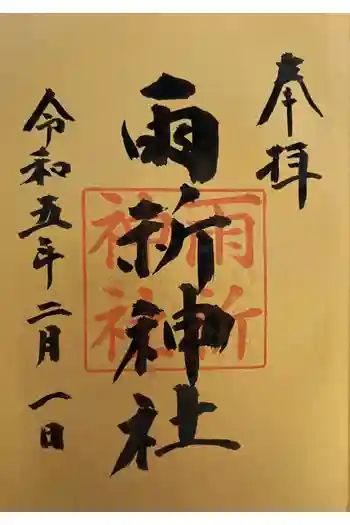 奉拝
雨祈神社
令和五年二月一日
雨祈
神社